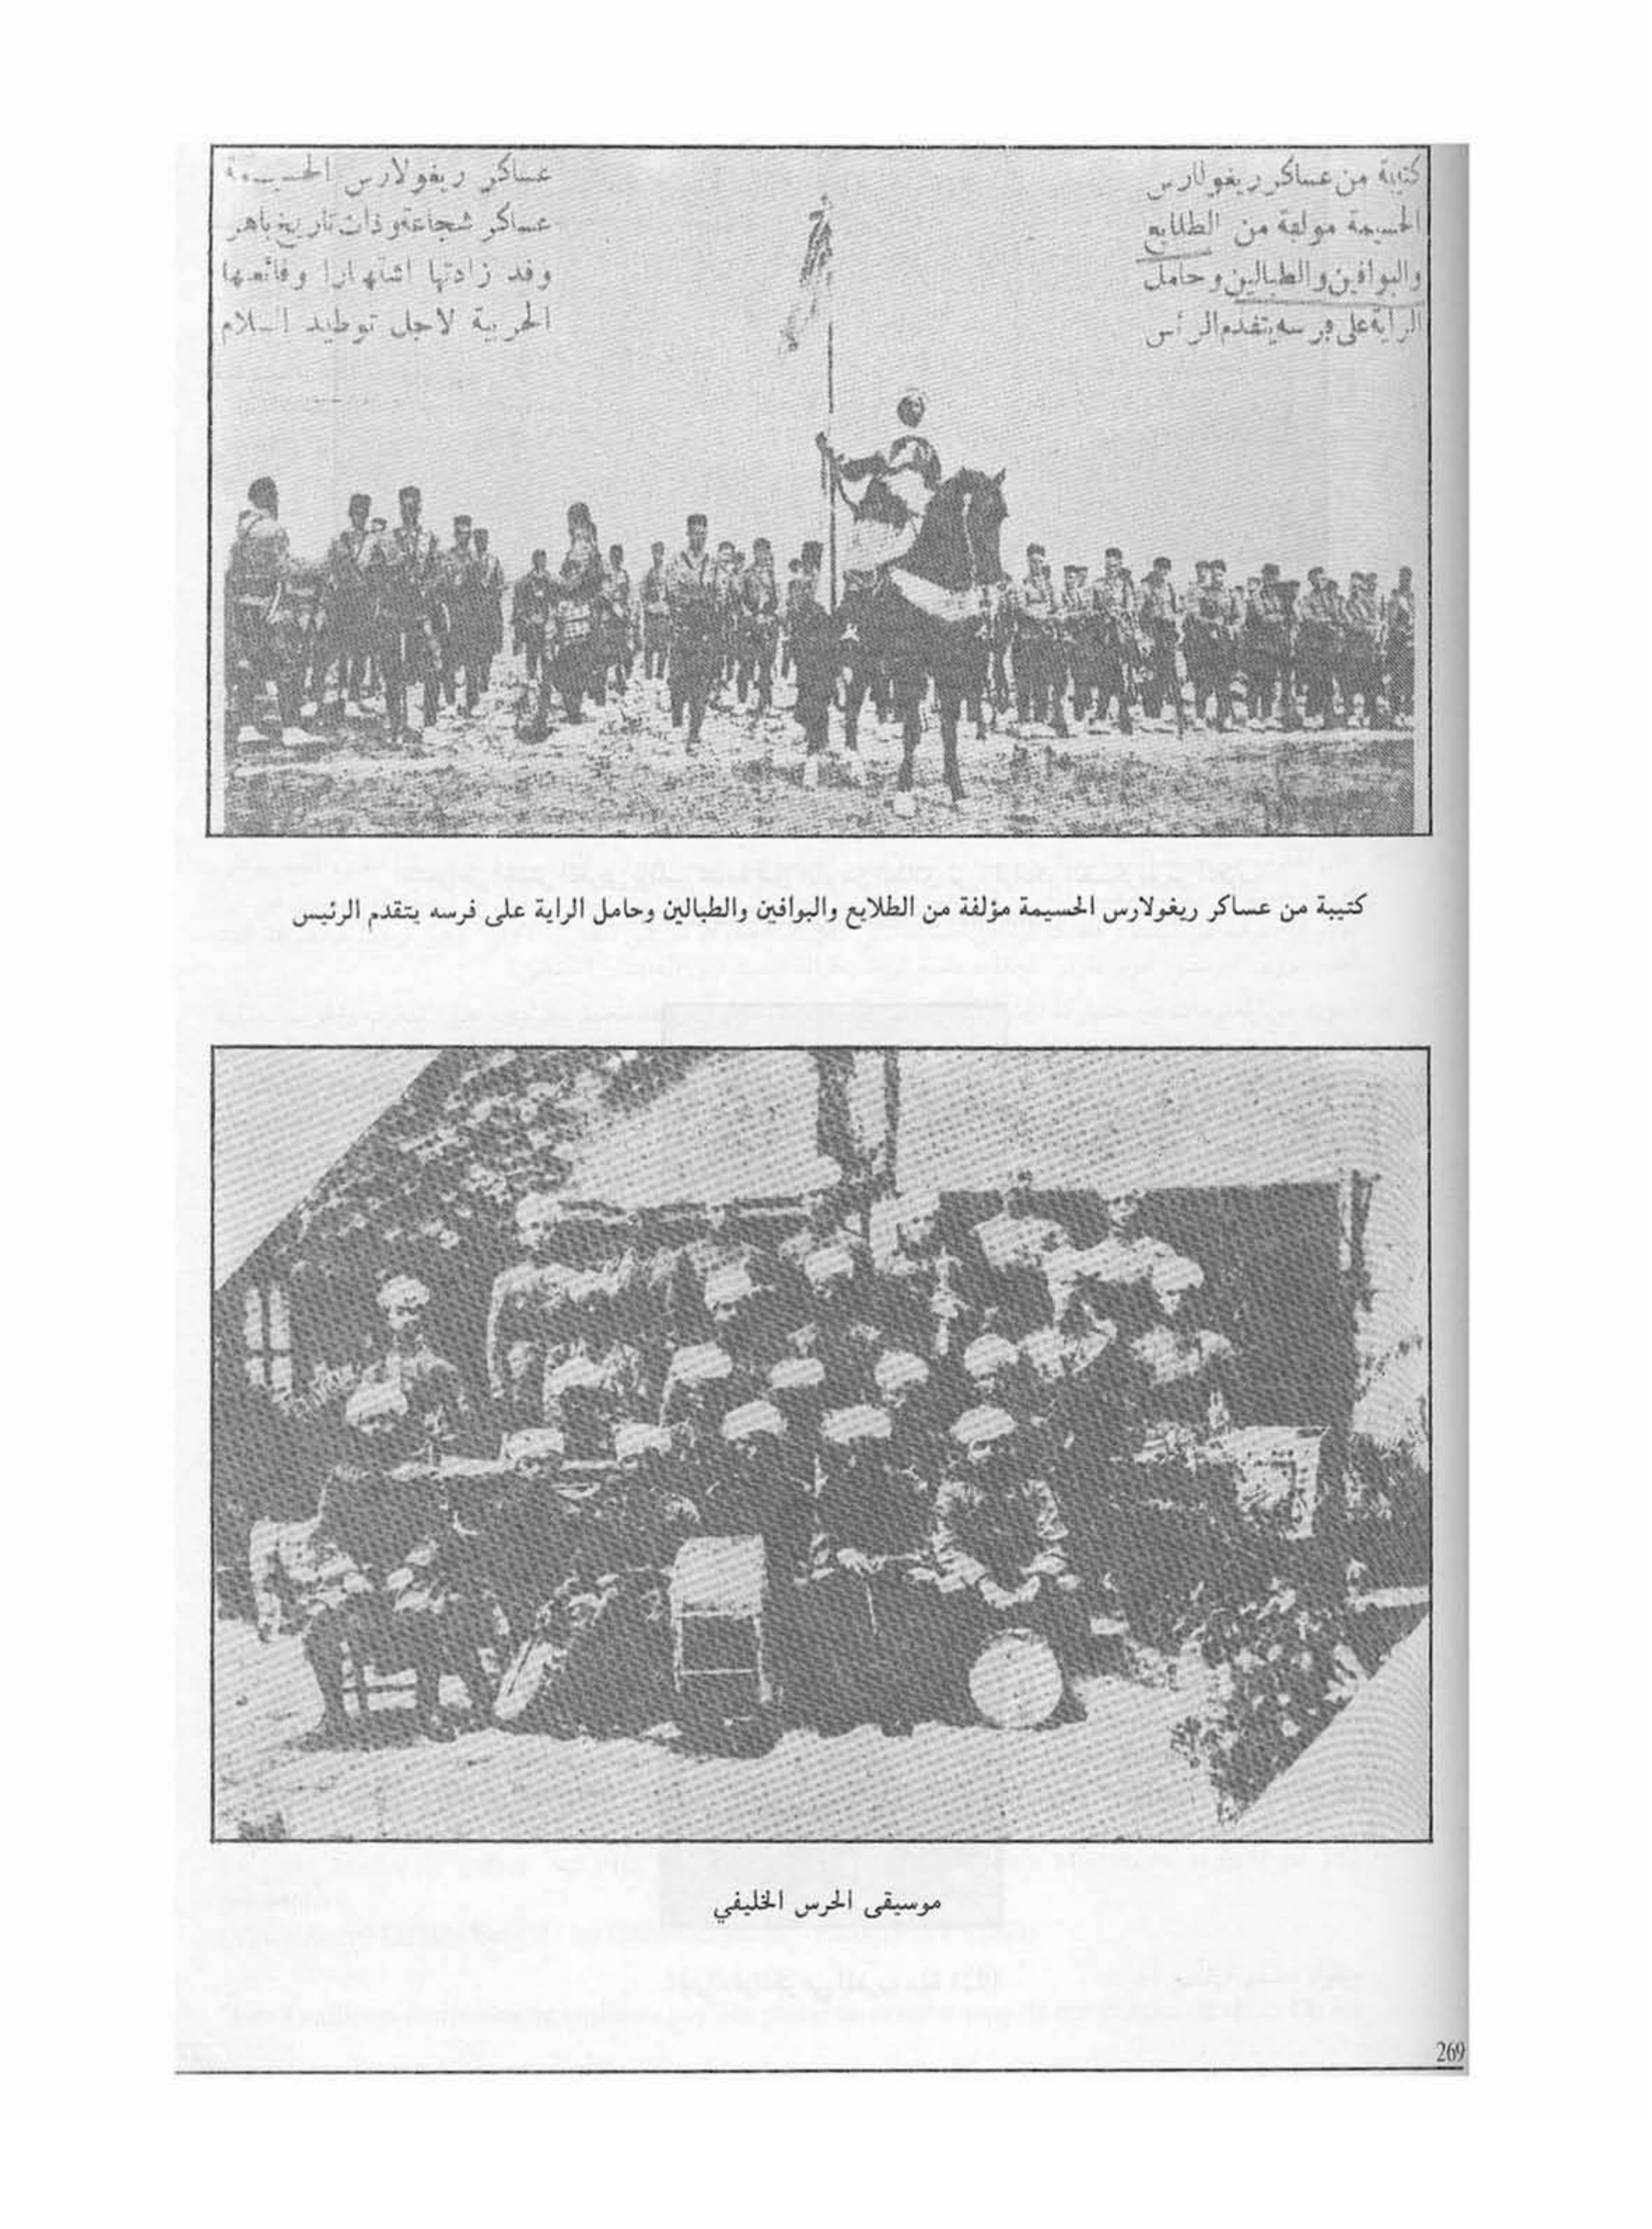 كتيبة من عساكر ريغولارس
الحسيمة مولفة من الطلايع
والبوافين والطبالين وحامل
الراية على فرسه يتقدم الرأس
عساكر ريغولارس الحسيمة
عساكر شجاعة وذات تاريخ باهر
وقد زادتها اشتهارا وقائعها
الحربية لاجل توطيد السلام
كتيبة من عساكر ريغولارس الحسيمة مؤلفة من الطلايع والبوافين والطبالين وحامل الراية على فرسه يتقدم الرئيس
موسيقى الحرس الخليفي
269